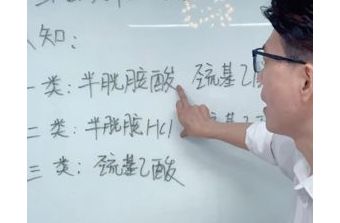 知:
一类: 半胱胺酸 巯基乙
二类: 半胱胺HCl 巯基乙
三类: 巯基乙酸